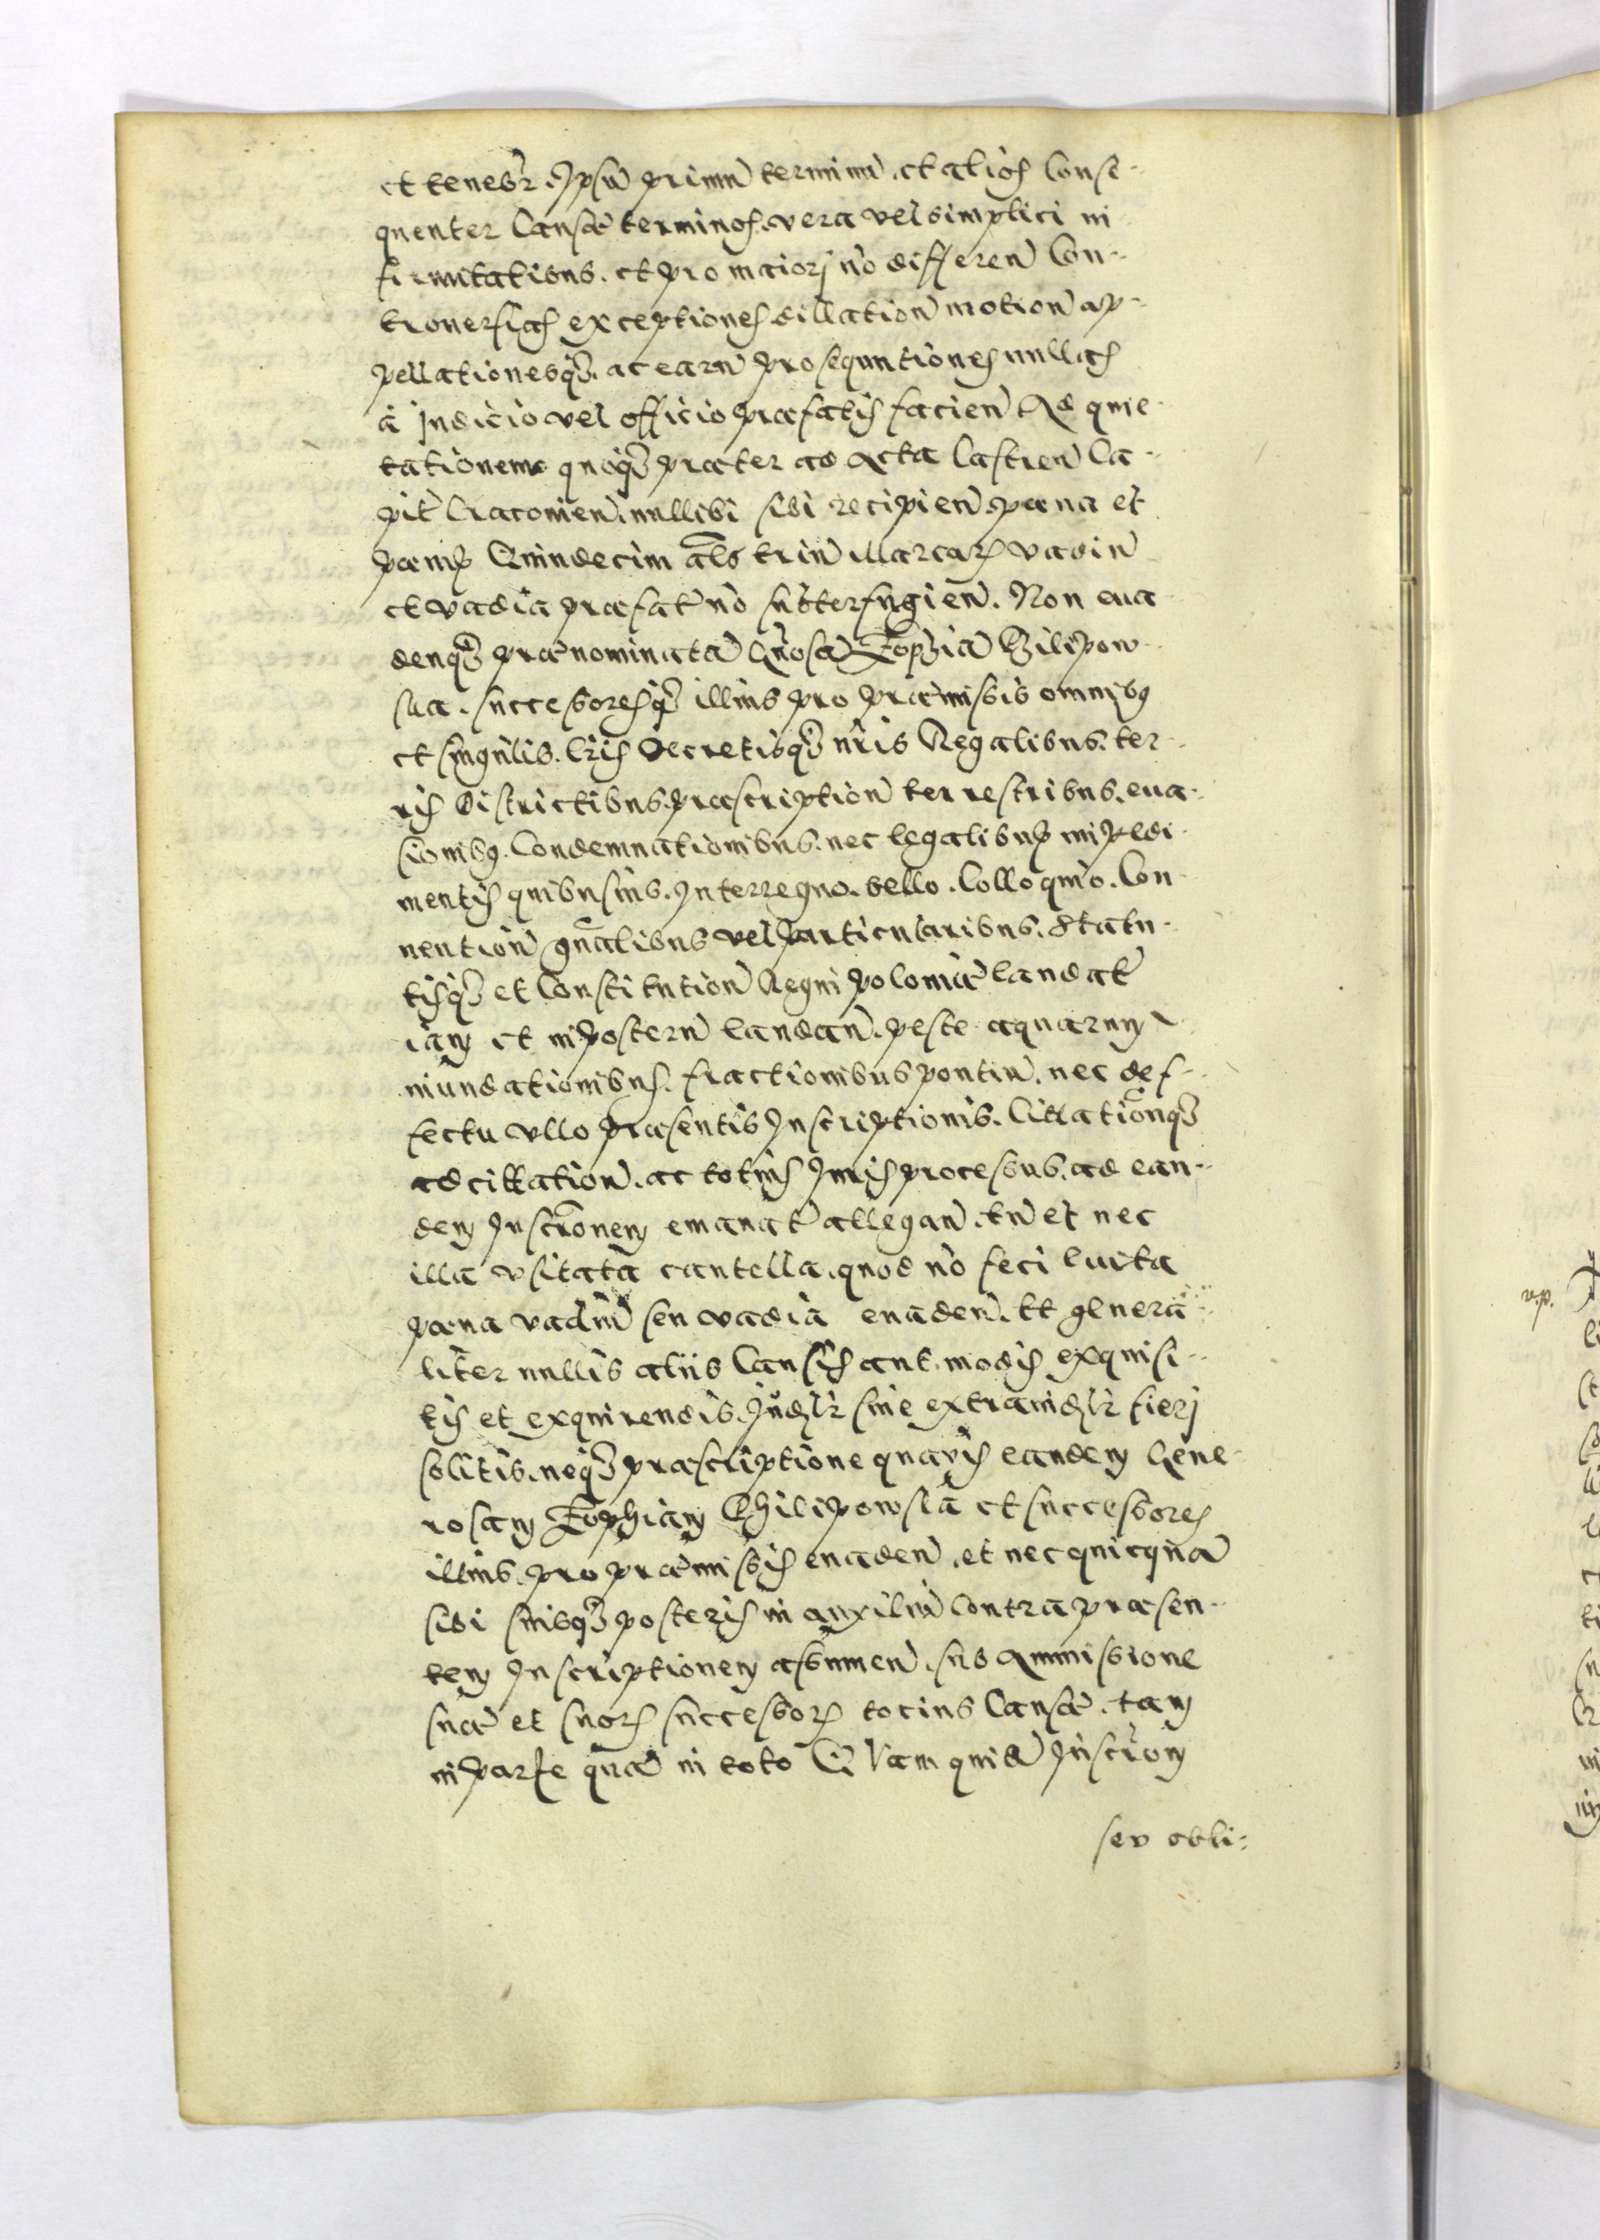 et tenebr. Ipsū primū terminū. et alios Conse-
quenter Causæ terminos. vera vel simplici in
firmitatibus. et pro maiorj nō differen̄ Con-
trouersias exceptiones dillation̄ motion̄ ap-
pellationesq3. ac earū prosequutiones nullas
ā Judicio vel officio præfatis facien̄ Ad quie-
tationeme quoq3 præter ad Acta Castren̄ Ca-
pit̄ Cracouien̄. nullibi sibi recipien̄. pæna et
pænis Quindecim als trin̄ Marcar̄ vadiū
et vadia præfat̄ nō subterfugien̄. Non eua
denq3 prænominatā Gnosā Zophiā Philipow-
ska. successoresq3 illius pro præmissis omnibus
et singulis. Lris Decretisq3 nr̄is Regalibus. ter-
ris Districtibus. præscription̄ terrestribus. eua-
sionibus. Condemnationibus. nec legalibus impedi-
mentis quibusuis. Interregno. bello. Colloquio. Con
uention̄ gn̄alibus vel particularibus. Statu-
tisq3 et Constitution̄ Regni poloniæ laudat̄
iam et inposterū laudan̄. peste aquarum
inundationibus. fractionibus pontiū. nec def-
fectu vllo præsentis Inscriptionis. Citationq3
ad cittation̄. ac totius Juris processus. ad ean-
dem Inscr̄onem emanat̄ allegan̄. tn̄ et nec
illa vsitatā cautella. quod nō feci luita
pæna vadiū seu vadia euaden̄. Et genera
liter nullis alijs Causis aut modis exquisi-
tis et exquirendis. Judlr̄ siue extraiudlr̄ fierj
solitis. neq3 præscriptione quavis eandem Gene-
rosam Zophiam Philipowskā et successores
illius. pro præmissis euaden̄. et nec quicquā
sibi suisq3 posteris in auxiliū Contra præsen-
tem Inscriptionem assumen̄. sub Ammissione
suæ et suor̄ successor̄ tocius Causæ. tam
in parte quā in toto Quam quidē Inscr̄om
seu obli:
v.p.